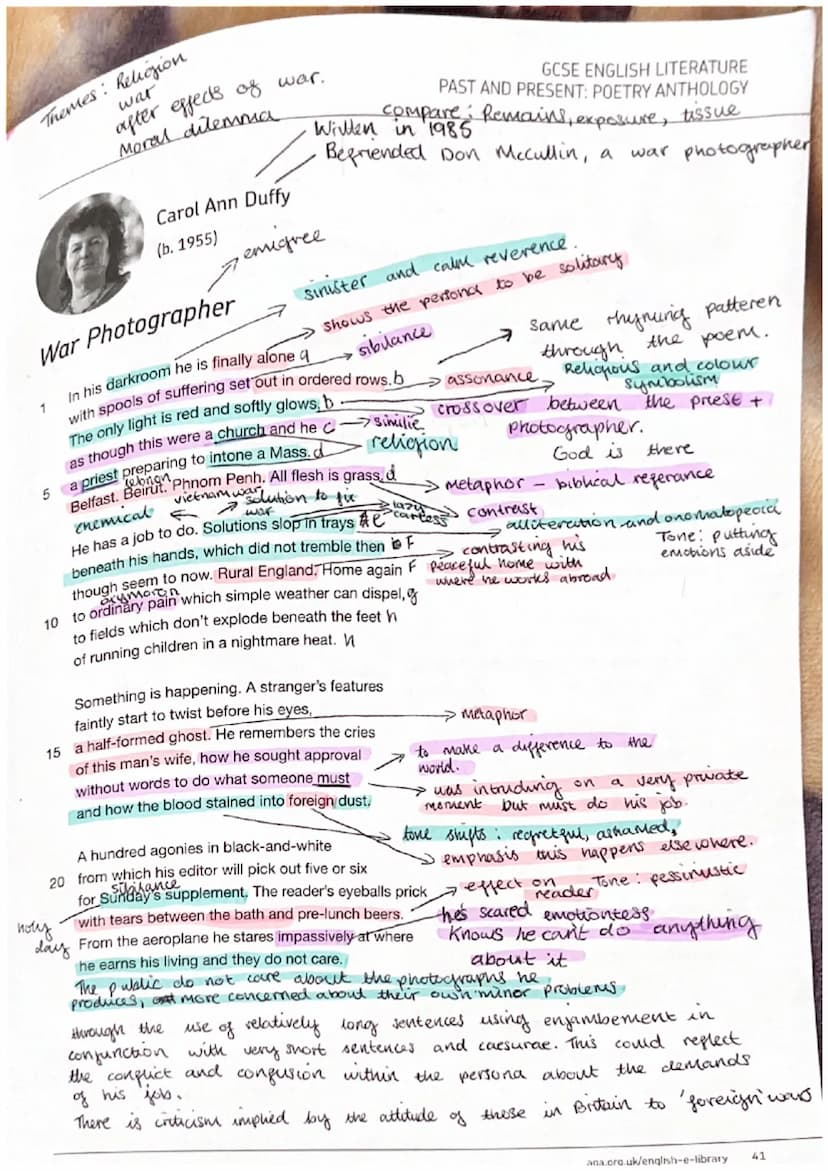 Themes: Religion
war
after effects of war.
Moral dilemma
GCSE ENGLISH LITERATURE
PAST AND PRESENT: POETRY ANTHOLOGY
compare: Remains, exposure, tissue
Written in 1985
Befriended Don McCullin, a war photographer
Carol Ann Duffy
(b. 1955)
emigree
War Photographer
sinister and calm reverence.
shows the persona to be solitary
sibilance
same rhyming patteren
through the poem.
1 In his darkroom he is finally alone a
with spools of suffering set out in ordered rows. b
assonance
Religious and colour
symbolism
The only light is red and softly glows, b
crossover between the priest +
photographer.
as though this were a church and he c
similie
religion
God is there
a priest preparing to intone a Mass. d
5 Belfast. Beirut. Phnom Penh. All flesh is grass. d
lebnon
vietnam war
metaphor - biblical referance
contrast
chemical
solution to fix
war
lazy
careless
He has a job to do. Solutions slop in trays e
alliteration and onomatopoeia
Tone: putting
emotions aside
beneath his hands, which did not tremble then F
though seem to now. Rural England. Home again F
contrasting his
peaceful home with
where he works abroad
oxymoron
10 to ordinary pain which simple weather can dispel, g
to fields which don't explode beneath the feet h
of running children in a nightmare heat. h
Something is happening. A stranger's features
faintly start to twist before his eyes,
metaphor
15 a half-formed ghost. He remembers the cries
of this man's wife, how he sought approval
to make a difference to the
world.
without words to do what someone must
was intruding on a very private
moment but must do his job.
and how the blood stained into foreign dust.
tone shifts: regretful, ashamed,
emphasis this happens elsewhere.
A hundred agonies in black-and-white
20 from which his editor will pick out five or six
sibilance
for Sunday's supplement. The reader's eyeballs prick
effect on
reader
Tone: pessimistic
with tears between the bath and pre-lunch beers.
he's scared emotionless
holy
day
From the aeroplane he stares impassively at where
knows he can't do anything
about it
he earns his living and they do not care.
The public do not care about the photographs he
produces, more concerned about their own minor problems
through the use of relatively long sentences using enjambement in
conjunction with very short sentences and caesurae. This could reflect
the conflict and confusion within the persona about the demands
of his job.
There is criticism implied by the attitude of those in Britain to 'foreign' wars
aqa.org.uk/english-e-library 41